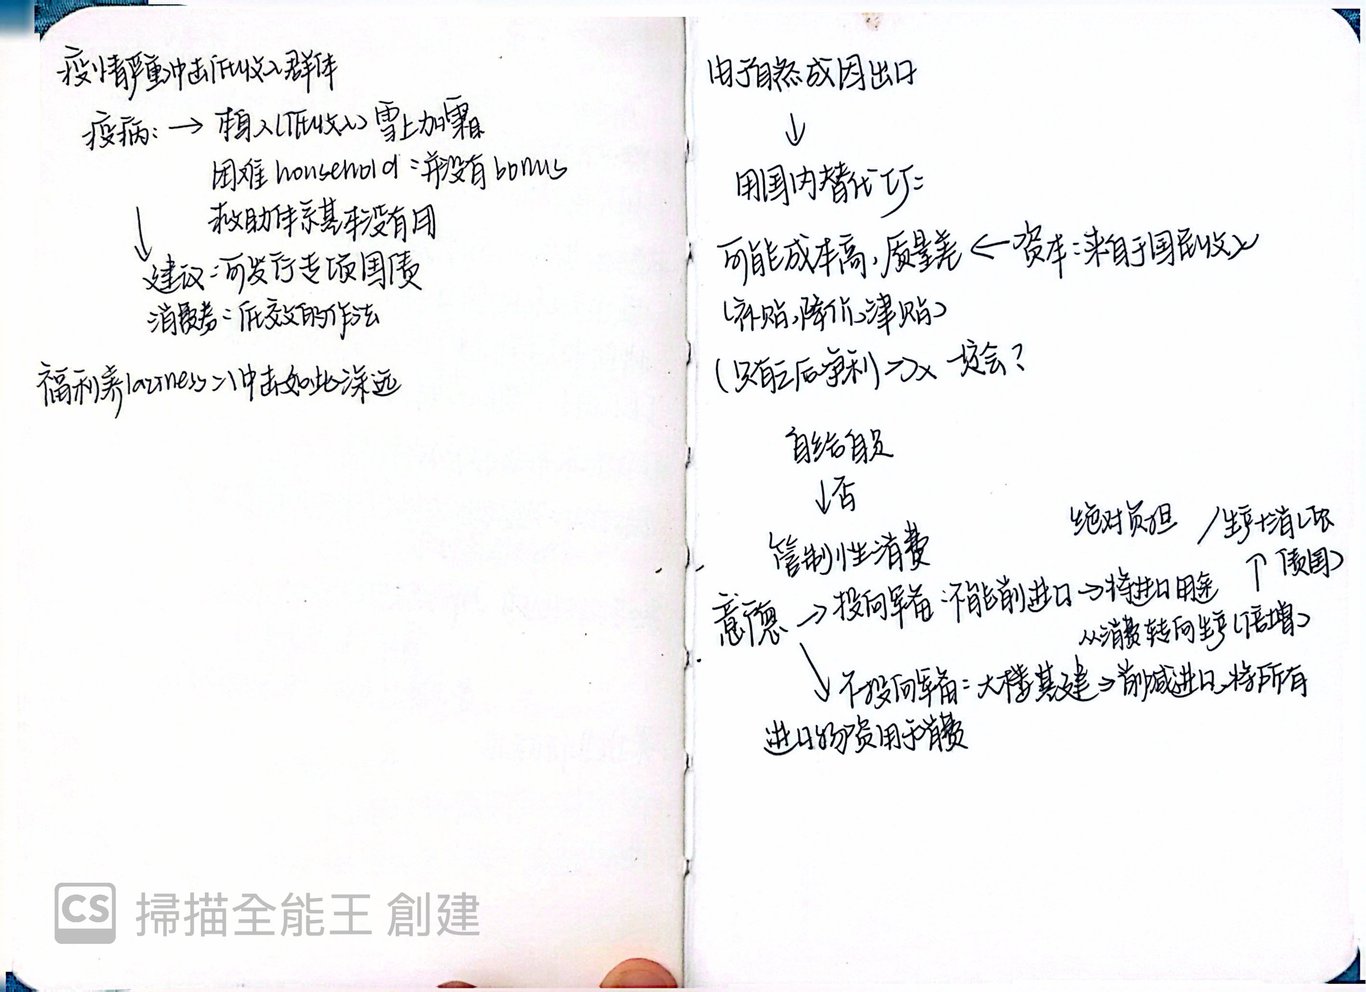 疫情严重冲击低收入群体
疫病: → 穷人(低收入)雪上加霜
困难household:并没有bonus
救助体系基本没有用
↓
建议:可发行专项国债
消费券:低效的作法
福利养laziness => 冲击如此深远
由于自然成因出口
↓
用国内替代
可能成本高,质量差 ← 资本:来自于国民收入
(补贴,降价,津贴)
(只有三后净利) => x 一定会?
自给自足
↓否
管制性消费
绝对负担 /生产+消(取
↑ 债国)
意德 → 投向军备:不能削进口 → 将进口用途
从消费转向生产(倍增)
不投向军备:大楼基建 → 削减进口,将所有
进口物资用于消费
CS 掃描全能王 創建